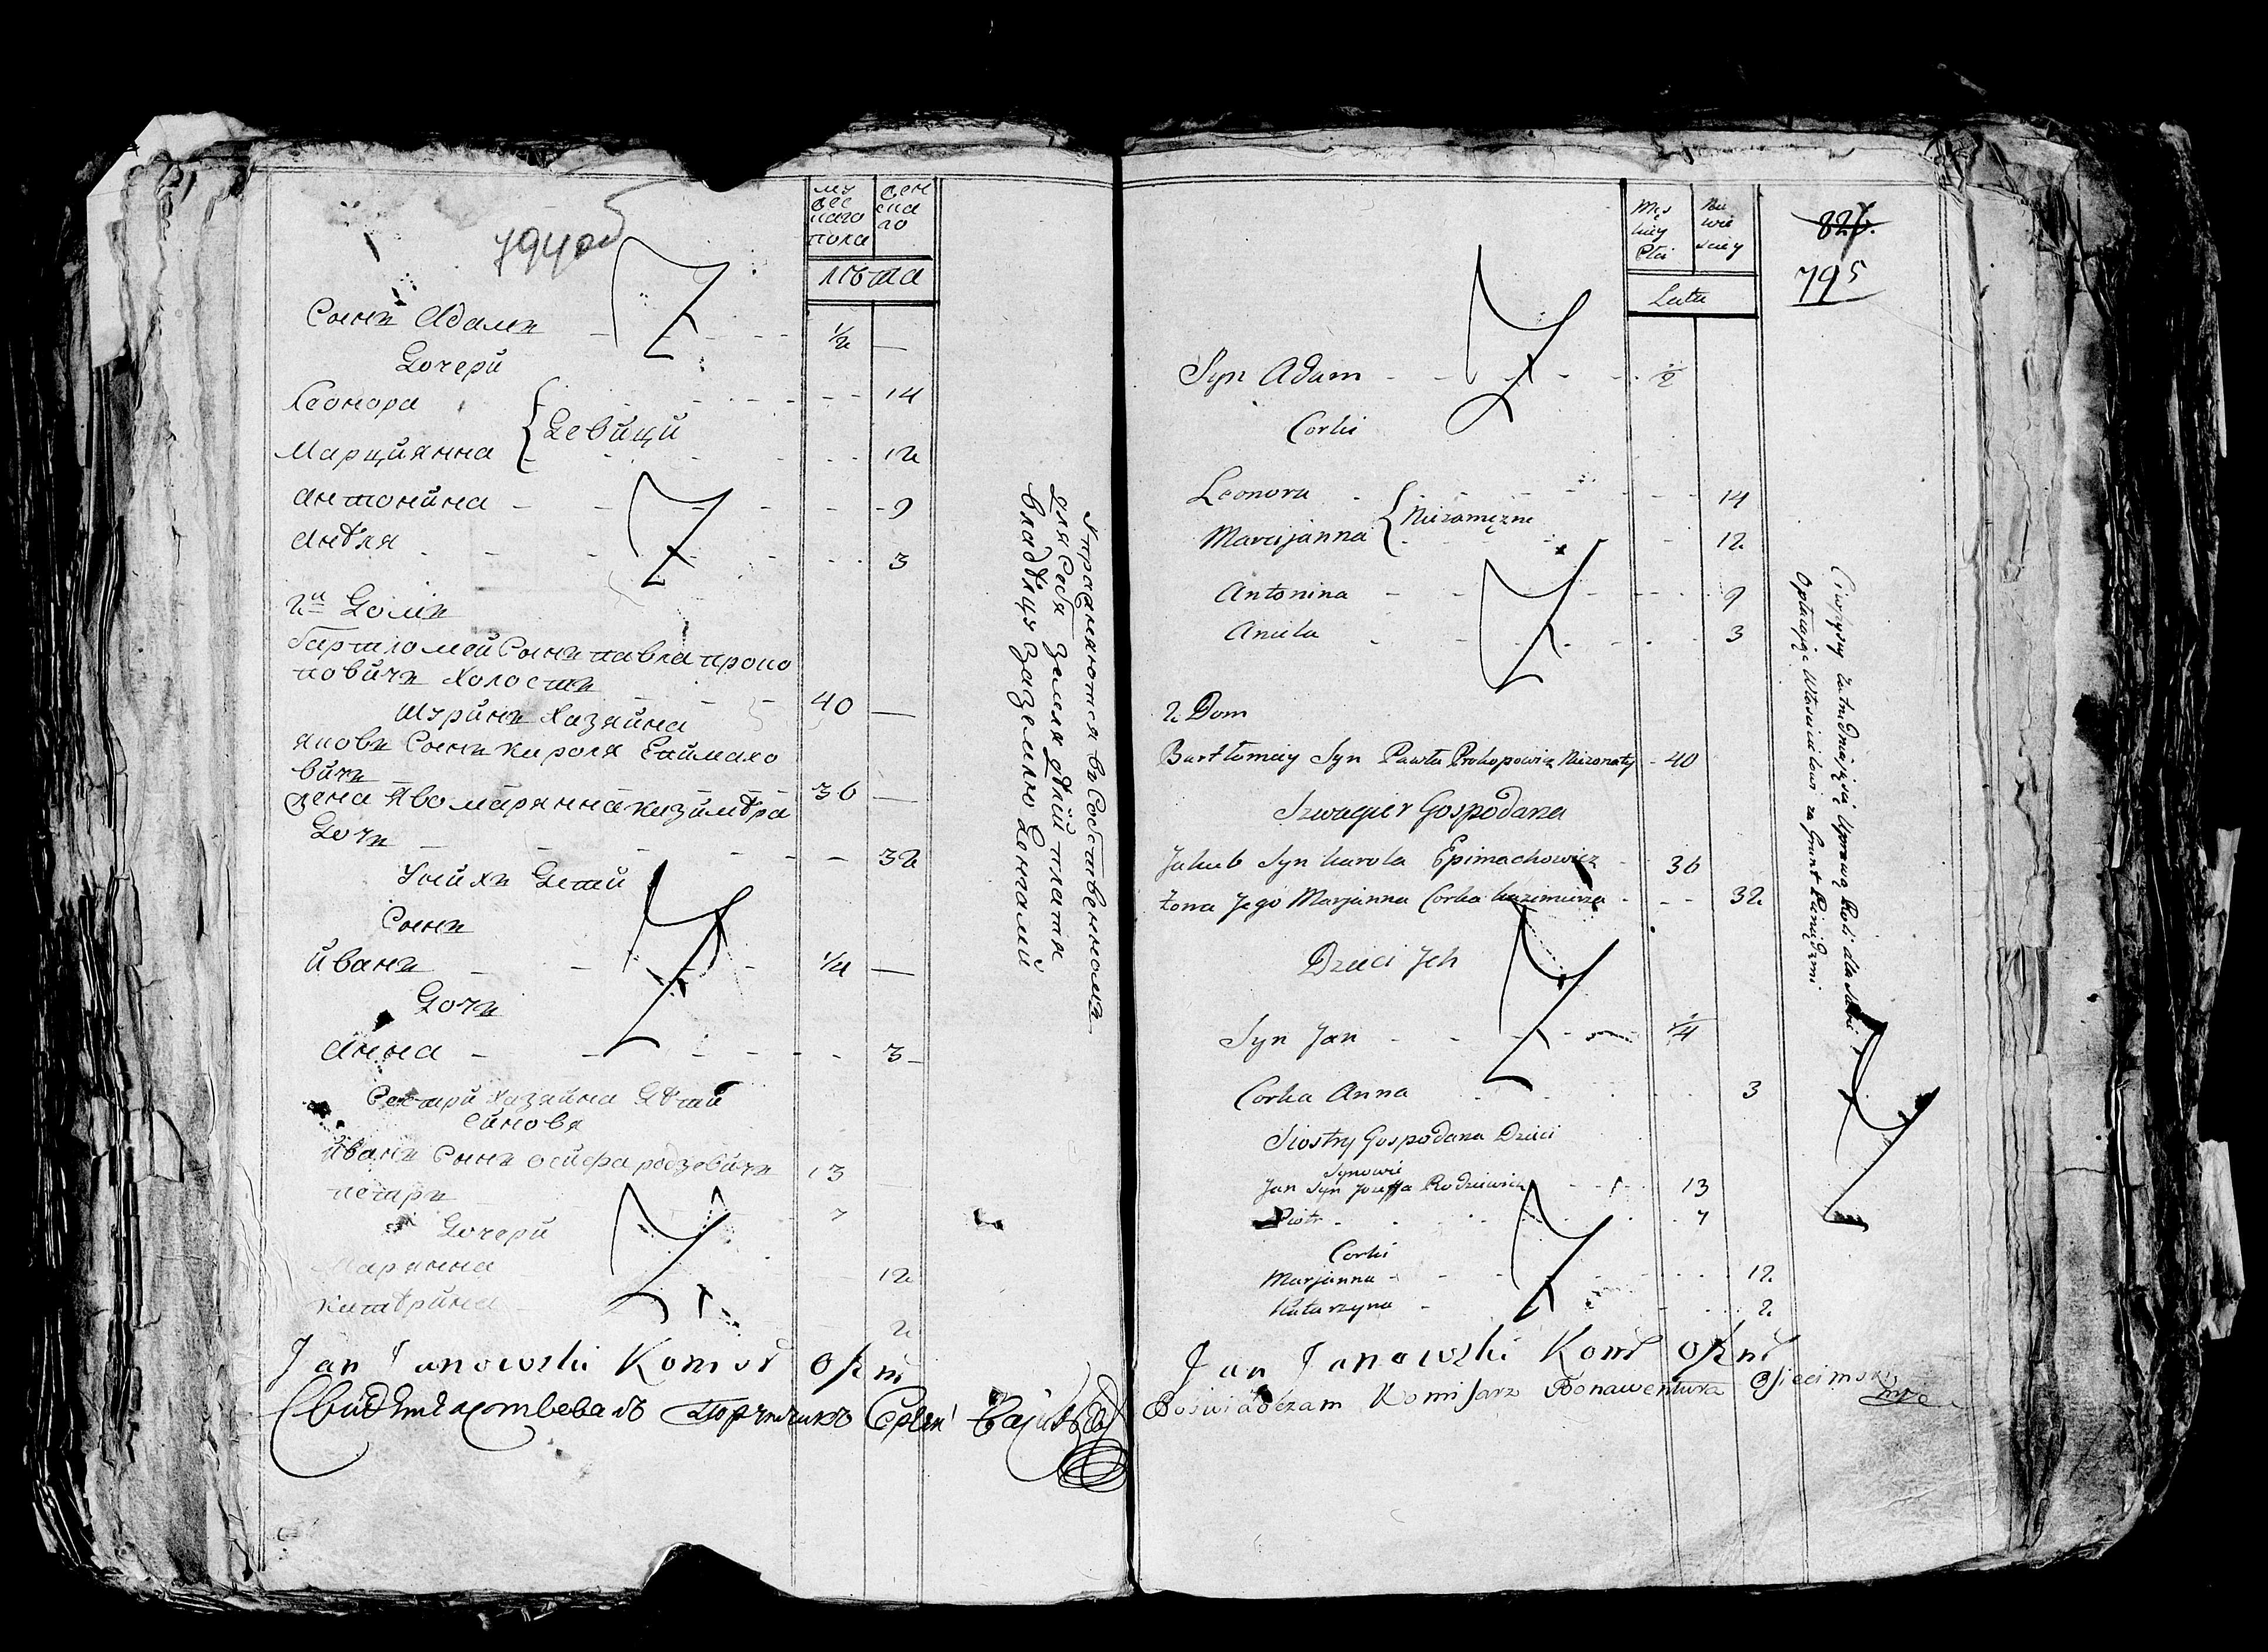 794 об
му
жес
каго
пола
жен
ска
го
лѣта
Сынъ Адамъ ½ —
Дочери
Леонора 14
Девици
Марциянна 12
Антонина 9
Анѣля 3
2й Домъ
бартломей Сынъ павла проко
повичъ Холостъ 40 —
Шуринъ Хазяина
яковъ Сынъ кароля Епимахо
вичъ 36 —
жена Яво марянна казимѣра
Дочъ 32
Уних Детей
Сынъ
иванъ ¼ —
Дочъ
Анна 3
Сестри Хазяина Дѣти
Синовя
иванъ Сынъ осифа родзевичъ 13
петаръ 7
Дочери
Марянна 12
катѣрина 2
Упражняются въ Собственнома
для Себя земля дѣлий платя
владѣлцу за землю Денгами
Jan Janowski Kom
Męs
kiey
Płci
Nie
wie
sciey
Lata
826.
795
Syn Adam ½
Corki
Leonora 14
Niezamęzne
Marcijanna 12
Antonina 9
Aniela 3
2 Dom
Bartłomiey Syn Pawła Prokopowicz Niezonaty 40
Szwagier Gospodarza
Jakub Syn karola Epimachowicz 36
Żona Jego Marjanna Corka kazimierza 32
Dzieci Jch
Syn Jan ¼
Corka Anna 3
Siostry Gospodarza Dzieci
Synowie
Jan Syn Jozeffa Rodziewicz 13
Piotr 7
Corki
Marjanna 12
Katarzyna 2
zatrudniają się Uprawą Roli dla siebie
Opłacając Włascicielowi za Grunt Pieniędzmi
Jan Janowski Kom
Poswiadczam Komisarz Bonawentura